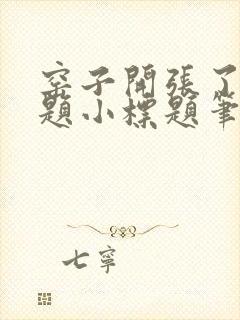 窑子開張了
題小標題筆
七寧